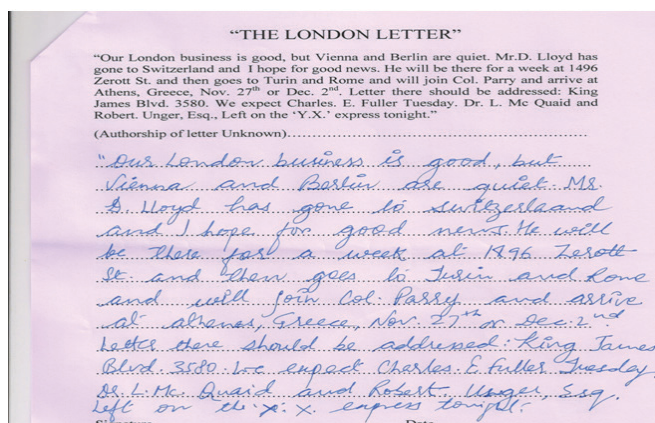 "THE LONDON LETTER"
"Our London business is good, but Vienna and Berlin are quiet. Mr.D. Lloyd has
gone to Switzerland and I hope for good news. He will be there for a week at 1496
Zerott St. and then goes to Turin and Rome and will join Col. Parry and arrive at
Athens, Greece, Nov. 27th or Dec. 2nd. Letter there should be addressed: King
James Blvd. 3580. We expect Charles. E. Fuller Tuesday. Dr. L. Mc Quaid and
Robert. Unger, Esq., Left on the 'Y.X.' express tonight."
(Authorship of letter Unknown)
"Our London business is good, but
Vienna and Berlin are quiet. Mr.
D. Lloyd has gone to switzerleand
and I hope for good news. He will
be there for a week at 1896 Zerott
St. and then goes to Turin and Rome
and will join Col. Parry and arrive
at athenes, Greece, Nov. 27th or Dec. 2nd.
Letter there should be addressed: King James
Blvd. 3580. We expect Charles. E. Fuller Tuesday
Dr. L. Mc Quaid and Robert. Unger, Esq.
left on the x. express tonight.